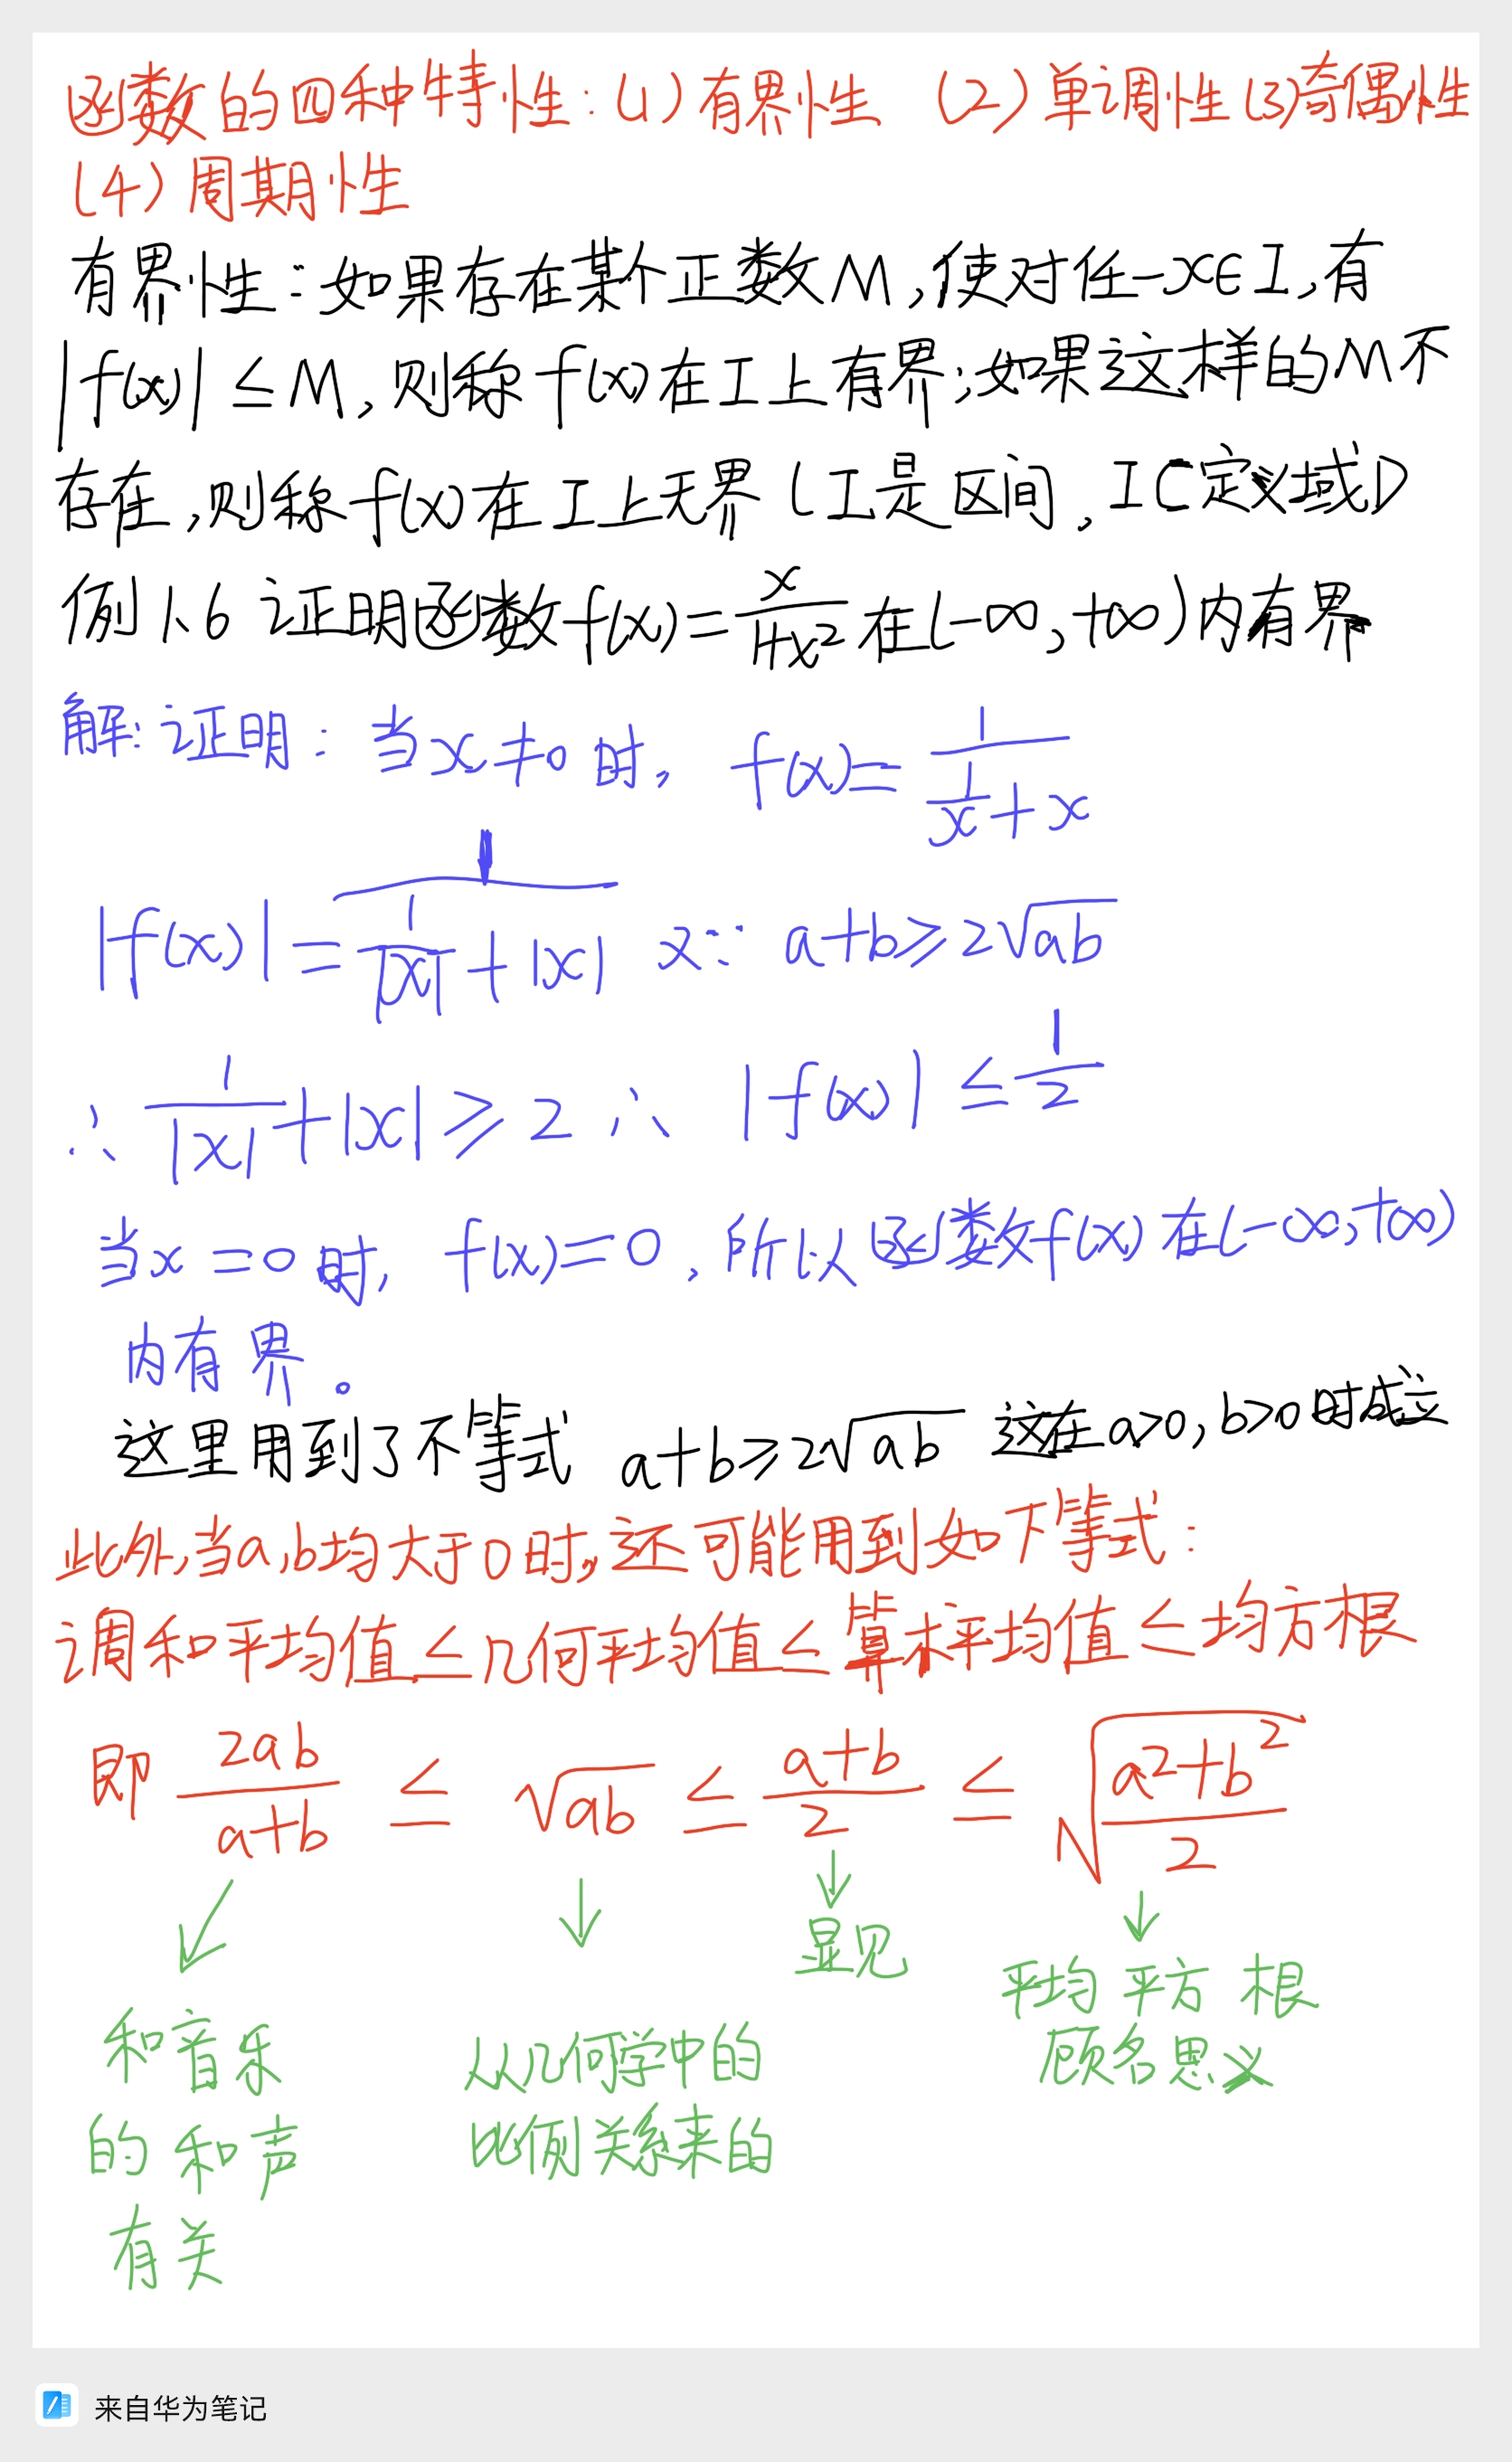 函数的四种特性:(1)有界性 (2)单调性(3)奇偶性
(4)周期性
有界性:如果存在某个正数M,使对任一x∈I,有
|f(x)|≤M,则称f(x)在I上有界;如果这样的M不
存在,则称f(x)在I上无界(I是区间,I⊂定义域D)
例1.6 证明函数f(x)=x/(1+x²)在(-∞,+∞)内有界
解:证明:当x≠0时, f(x)=1/(1/x+x)
|f(x)|=1/(1/|x|+|x|) 又∵ a+b≥2√ab
∴ 1/|x|+|x|≥2 ∴ |f(x)|≤1/2
当x=0时, f(x)=0,所以函数f(x)在(-∞,+∞)
内有界。
这里用到了不等式 a+b≥2√ab 这在a>0,b>0时成立
此外,当a,b均大于0时,还可能用到如下等式:
调和平均值≤几何平均值≤算术平均值≤均方根
即 2ab/(a+b) ≤ √ab ≤ (a+b)/2 ≤ √((a²+b²)/2)
和音乐
的和声
有关
从几何学中的
比例关系来的
显见
平均平方根
顾名思义
来自华为笔记